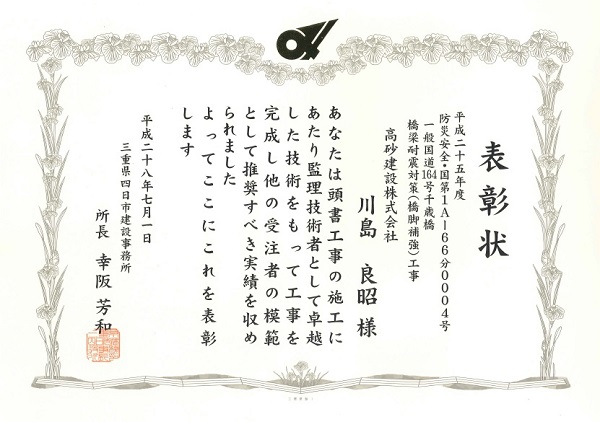 表彰状
平成二十五年度
防災安全・国第1A－166分0004号
一般国道164号千歳橋
橋梁耐震対策（橋脚補強）工事
高砂建設株式会社
川島良昭様
あなたは頭書工事の施工に
あたり監理技術者として卓越
した技術をもって工事を
完成し他の受注者の模範
として推奨すべき実績を収め
られました
よってここにこれを表彰
します
平成二十八年七月一日
三重県四日市建設事務所
所長 幸阪芳和